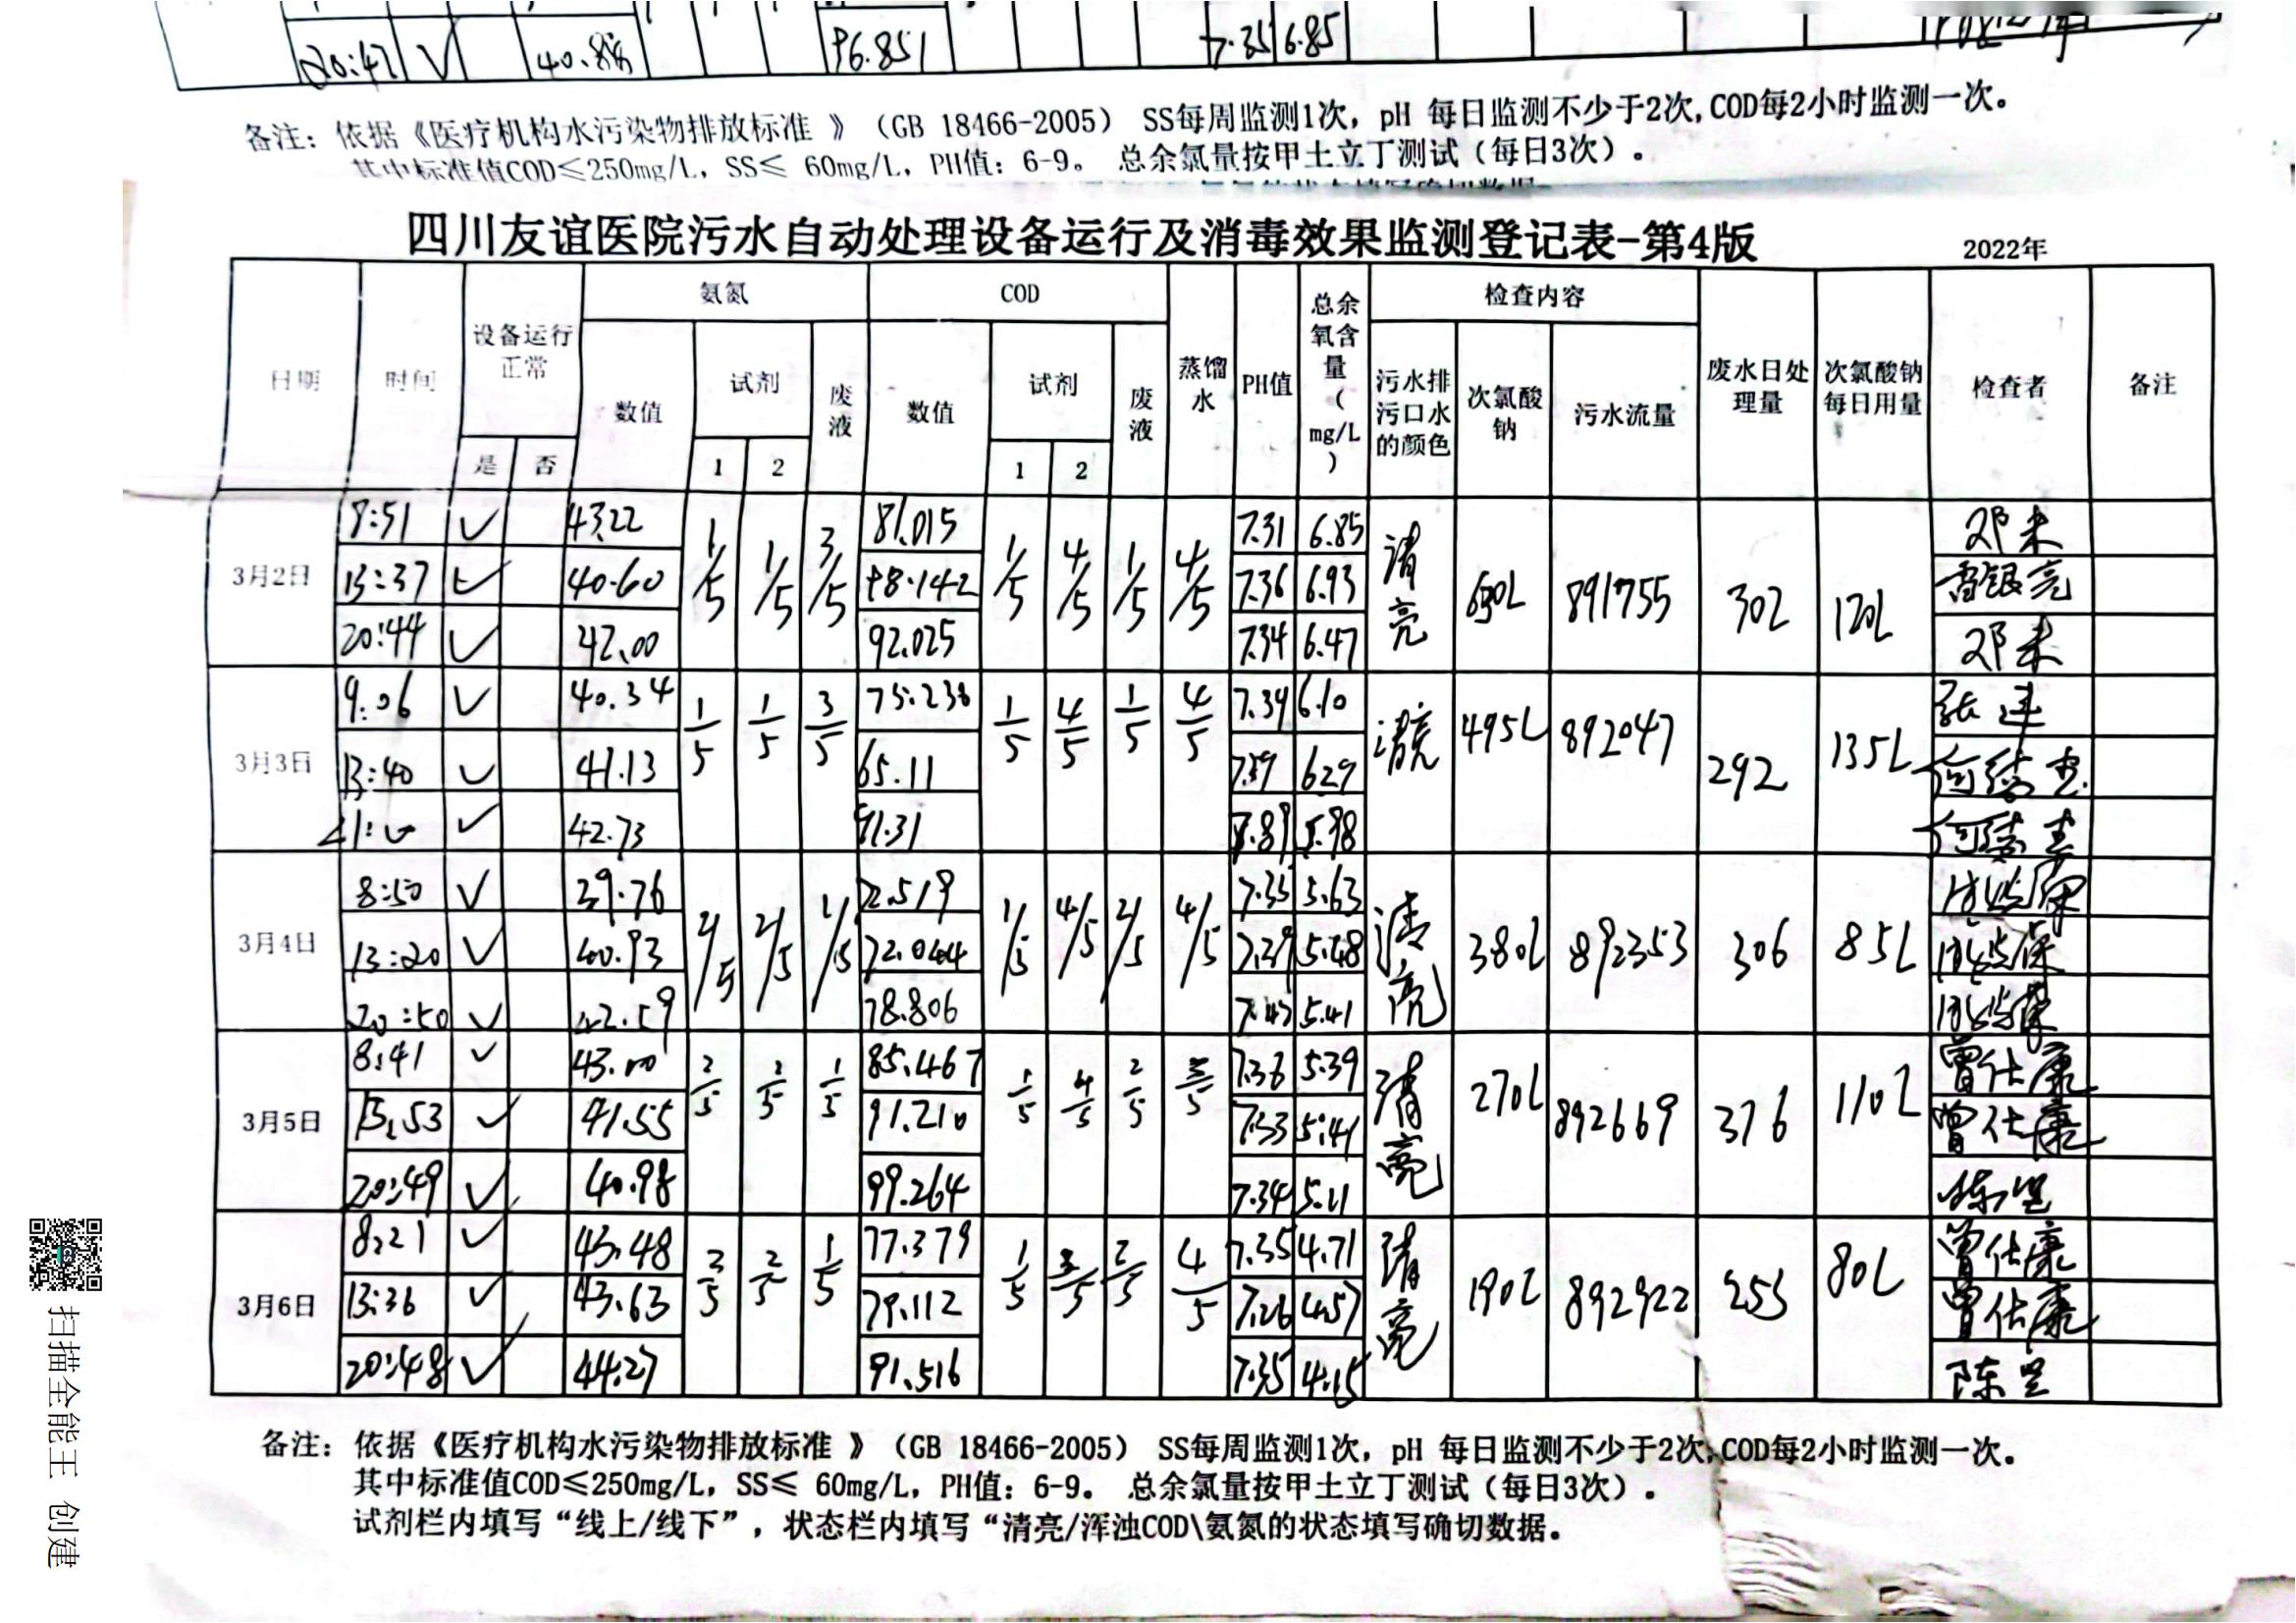 20:47 √ 96.851 7.35 6.85
备注：依据《医疗机构水污染物排放标准 》（GB 18466-2005） SS每周监测1次，pH 每日监测不少于2次,COD每2小时监测一次。
其中标准值COD≤250mg/L，SS≤ 60mg/L，PH值：6-9。 总余氯量按甲土立丁测试（每日3次）。
四川友谊医院污水自动处理设备运行及消毒效果监测登记表-第4版 2022年
日期 时间 设备运行正常 氨氮 COD 蒸馏水 PH值 总余氧含量(mg/L) 检查内容 废水日处理量 次氯酸钠每日用量 检查者 备注
是 否 数值 试剂 废液 数值 试剂 废液 污水排污口水的颜色 次氯酸钠 污水流量
1 2 1 2
3月2日 8:51 √ 43.22 1/5 1/5 3/5 81.015 1/5 4/5 1/5 4/5 7.31 6.85 清亮 630L 891755 302 120L 邓未
13:37 √ 40.60 98.142 7.36 6.93 雷银亮
20:44 √ 42.00 92.025 7.34 6.47 邓未
3月3日 9:06 √ 40.34 1/5 1/5 3/5 75.238 1/5 4/5 1/5 4/5 7.39 6.10 清亮 495L 892047 292 135L
13:40 √ 41.13 65.11 7.39 6.29
√ 42.73 5.98
3月4日 8:50 √ 39.76 2/5 2/5 1/5 72.519 1/5 4/5 2/5 4/5 7.35 5.63 清亮 380L 892353 306 85L
13:20 √ 40.93 72.044 7.29 5.48
20:50 √ 42.59 78.806 7.43 5.41
3月5日 8:41 √ 43.00 2/5 2/5 1/5 85.467 1/5 4/5 2/5 3/5 7.36 5.39 清亮 270L 892669 376 110L 曾仕康
13:53 √ 41.55 91.210 7.33 5.41 曾仕康
20:49 √ 40.98 99.264 7.34 5.11 陈坚
3月6日 8:21 √ 43.48 2/5 2/5 1/5 77.379 1/5 3/5 2/5 4/5 7.35 4.71 清亮 190L 892922 253 80L 曾仕康
13:36 √ 43.63 79.112 7.26 4.57 曾仕康
20:48 √ 44.27 91.516 7.35 4.15 陈坚
备注：依据《医疗机构水污染物排放标准 》（GB 18466-2005） SS每周监测1次，pH 每日监测不少于2次,COD每2小时监测一次。
其中标准值COD≤250mg/L，SS≤ 60mg/L，PH值：6-9。 总余氯量按甲土立丁测试（每日3次）。
试剂栏内填写“线上/线下”，状态栏内填写“清亮/浑浊COD\氨氮的状态填写确切数据。
扫描全能王 创建